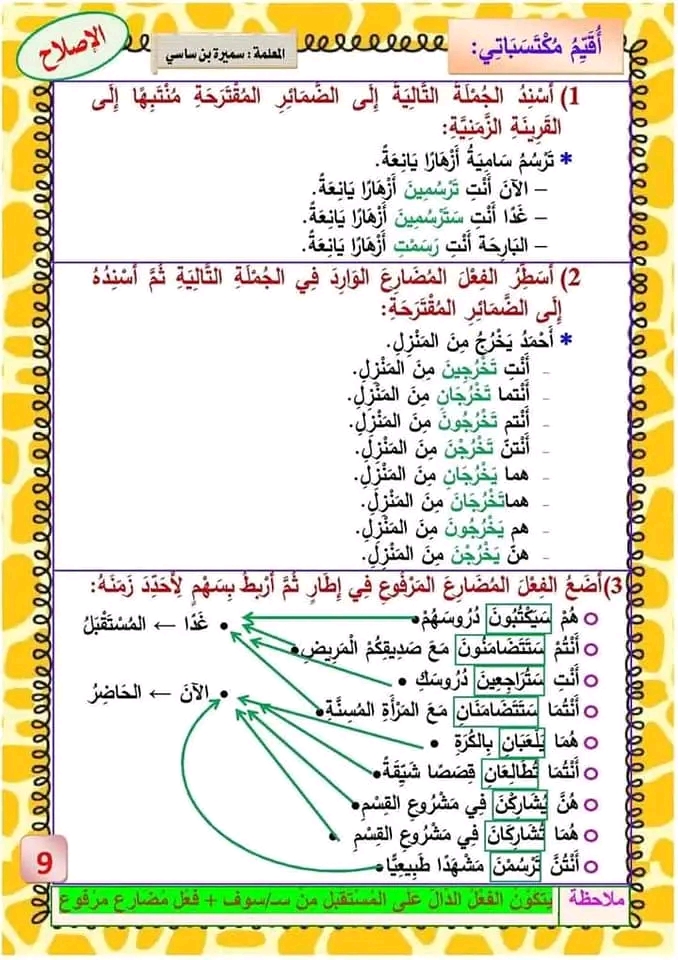 أُقَيِّمُ مُكْتَسَبَاتِي:
المعلمة : سميرة بن ساسي
الإصلاح
1) أَسْنِدُ الجُمْلَةَ التَّالِيَةَ إِلَى الضَّمَائِرِ المُقْتَرَحَةِ مُنْتَبِهًا إِلَى
القَرِينَةِ الزَّمَنِيَّةِ:
* تَرْسُمُ سَامِيَةُ أَزْهَارًا يَانِعَةً.
– الآنَ أَنْتِ تَرْسُمِينَ أَزْهَارًا يَانِعَةً.
– غَدًا أَنْتِ سَتَرْسُمِينَ أَزْهَارًا يَانِعَةً.
– البَارِحَة أَنْتِ رَسَمْتِ أَزْهَارًا يَانِعَةً.
2) أُسَطِّرُ الفِعْلَ المُضَارِعَ الوَارِدَ فِي الجُمْلَةِ التَّالِيَةِ ثُمَّ أُسْنِدُهُ
إِلَى الضَّمَائِرِ المُقْتَرَحَةِ:
* أَحْمَدُ يَخْرُجُ مِنَ المَنْزِلِ.
- أَنْتِ تَخْرُجِينَ مِنَ المَنْزِلِ.
- أَنْتما تَخْرُجَانِ مِنَ المَنْزِلِ.
- أَنْتم تَخْرُجُونَ مِنَ المَنْزِلِ.
- أَنْتنّ تَخْرُجْنَ مِنَ المَنْزِلِ.
- هما يَخْرُجَانِ مِنَ المَنْزِلِ.
- هما تَخْرُجَانِ مِنَ المَنْزِلِ.
- هم يَخْرُجُونَ مِنَ المَنْزِلِ.
- هنّ يَخْرُجْنَ مِنَ المَنْزِلِ.
3) أَضَعُ الفِعْلَ المُضَارِعَ المَرْفُوعَ فِي إِطَارٍ ثُمَّ أَرْبِطُ بِسَهْمٍ لِأُحَدِّدَ زَمَنَهُ:
هُمْ سَيَكْتُبُونَ دُرُوسَهُمْ
غَدًا ← المُسْتَقْبَلُ
أَنْتُمْ سَتَتَضَامَنُونَ مَعَ صَدِيقِكُمْ الْمَرِيضِ
أَنْتِ سَتُرَاجِعِينَ دُرُوسَكِ
الآنَ ← الحَاضِرُ
أَنْتُمَا سَتَتَضَامَنَانِ مَعَ المَرْأَةِ المُسِنَّةِ
هُمَا يَلْعَبَانِ بِالكُرَةِ
أَنْتُمَا تُطَالِعَانِ قِصَصًا شَيِّقَةً
هُنَّ يُشَارِكْنَ فِي مَشْرُوعِ القِسْمِ
هُمَا تُشَارِكَانِ فِي مَشْرُوعِ القِسْمِ
أَنْتُنَّ تَرْسُمْنَ مَشْهَدًا طَبِيعِيًّا
9
ملاحظة يَتكَوَّنُ الفِعْلُ الدَّالُ عَلَى المُسْتَقْبَلِ مِنْ سـ/سوف + فِعْل مُضَارِع مَرْفُوع